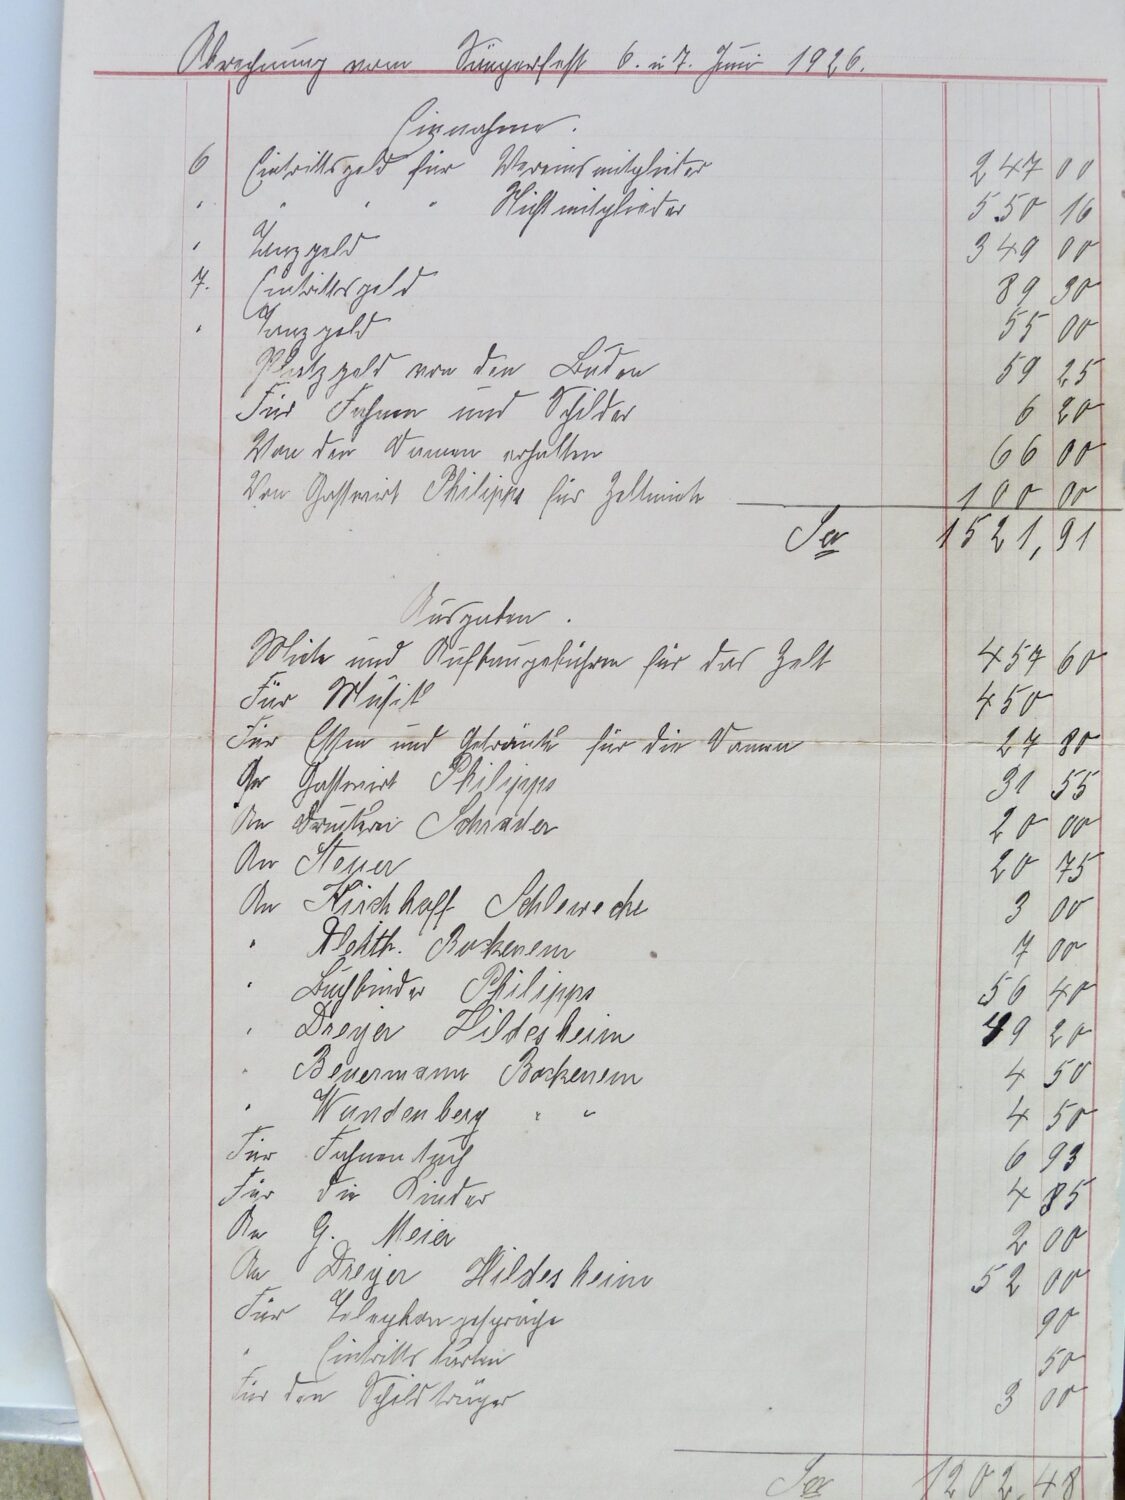 Abrechnung vom Sängerfest 6. u 7. Juni 1926.
Einnahme.
6 Eintrittsgeld für Vereinsmitglieder 247 00
" " " " Nichtmitglieder 550 16
" Tanzgeld 349 00
7. Eintrittsgeld 89 30
" Tanzgeld 55 00
Platzgeld von den Buden 59 25
Für Fahnen und Schilder 6 20
Von den Damen erhalten 66 00
Von Gastwirt Philipps für Zeltmiete 100 00
Sa 1521,91
Ausgaben.
Miete und Aufbaugebühren für das Zelt 457 60
Für Musik 450
Für Essen und Getränke für die Damen 27 80
An Gastwirt Philipps 31 55
An Druckerei Schrader 20 00
An Steuer 20 75
An Kirchhoff Schlewecke 3 00
" Bockenem 7 00
" Buchbinder Philipps 56 40
" Dreyer Hildesheim 49 20
" Beuermann Bockenem 4 50
" Wundenberg " " 4 50
Für Fahnentuch 6 93
Für die Kinder 4 85
An G. Meier 2 00
An Dreyer Hildesheim 52 00
Für Telephongespräche 90
" Eintrittskarten 50
Für den Schildträger 3 00
Sa 1202,48